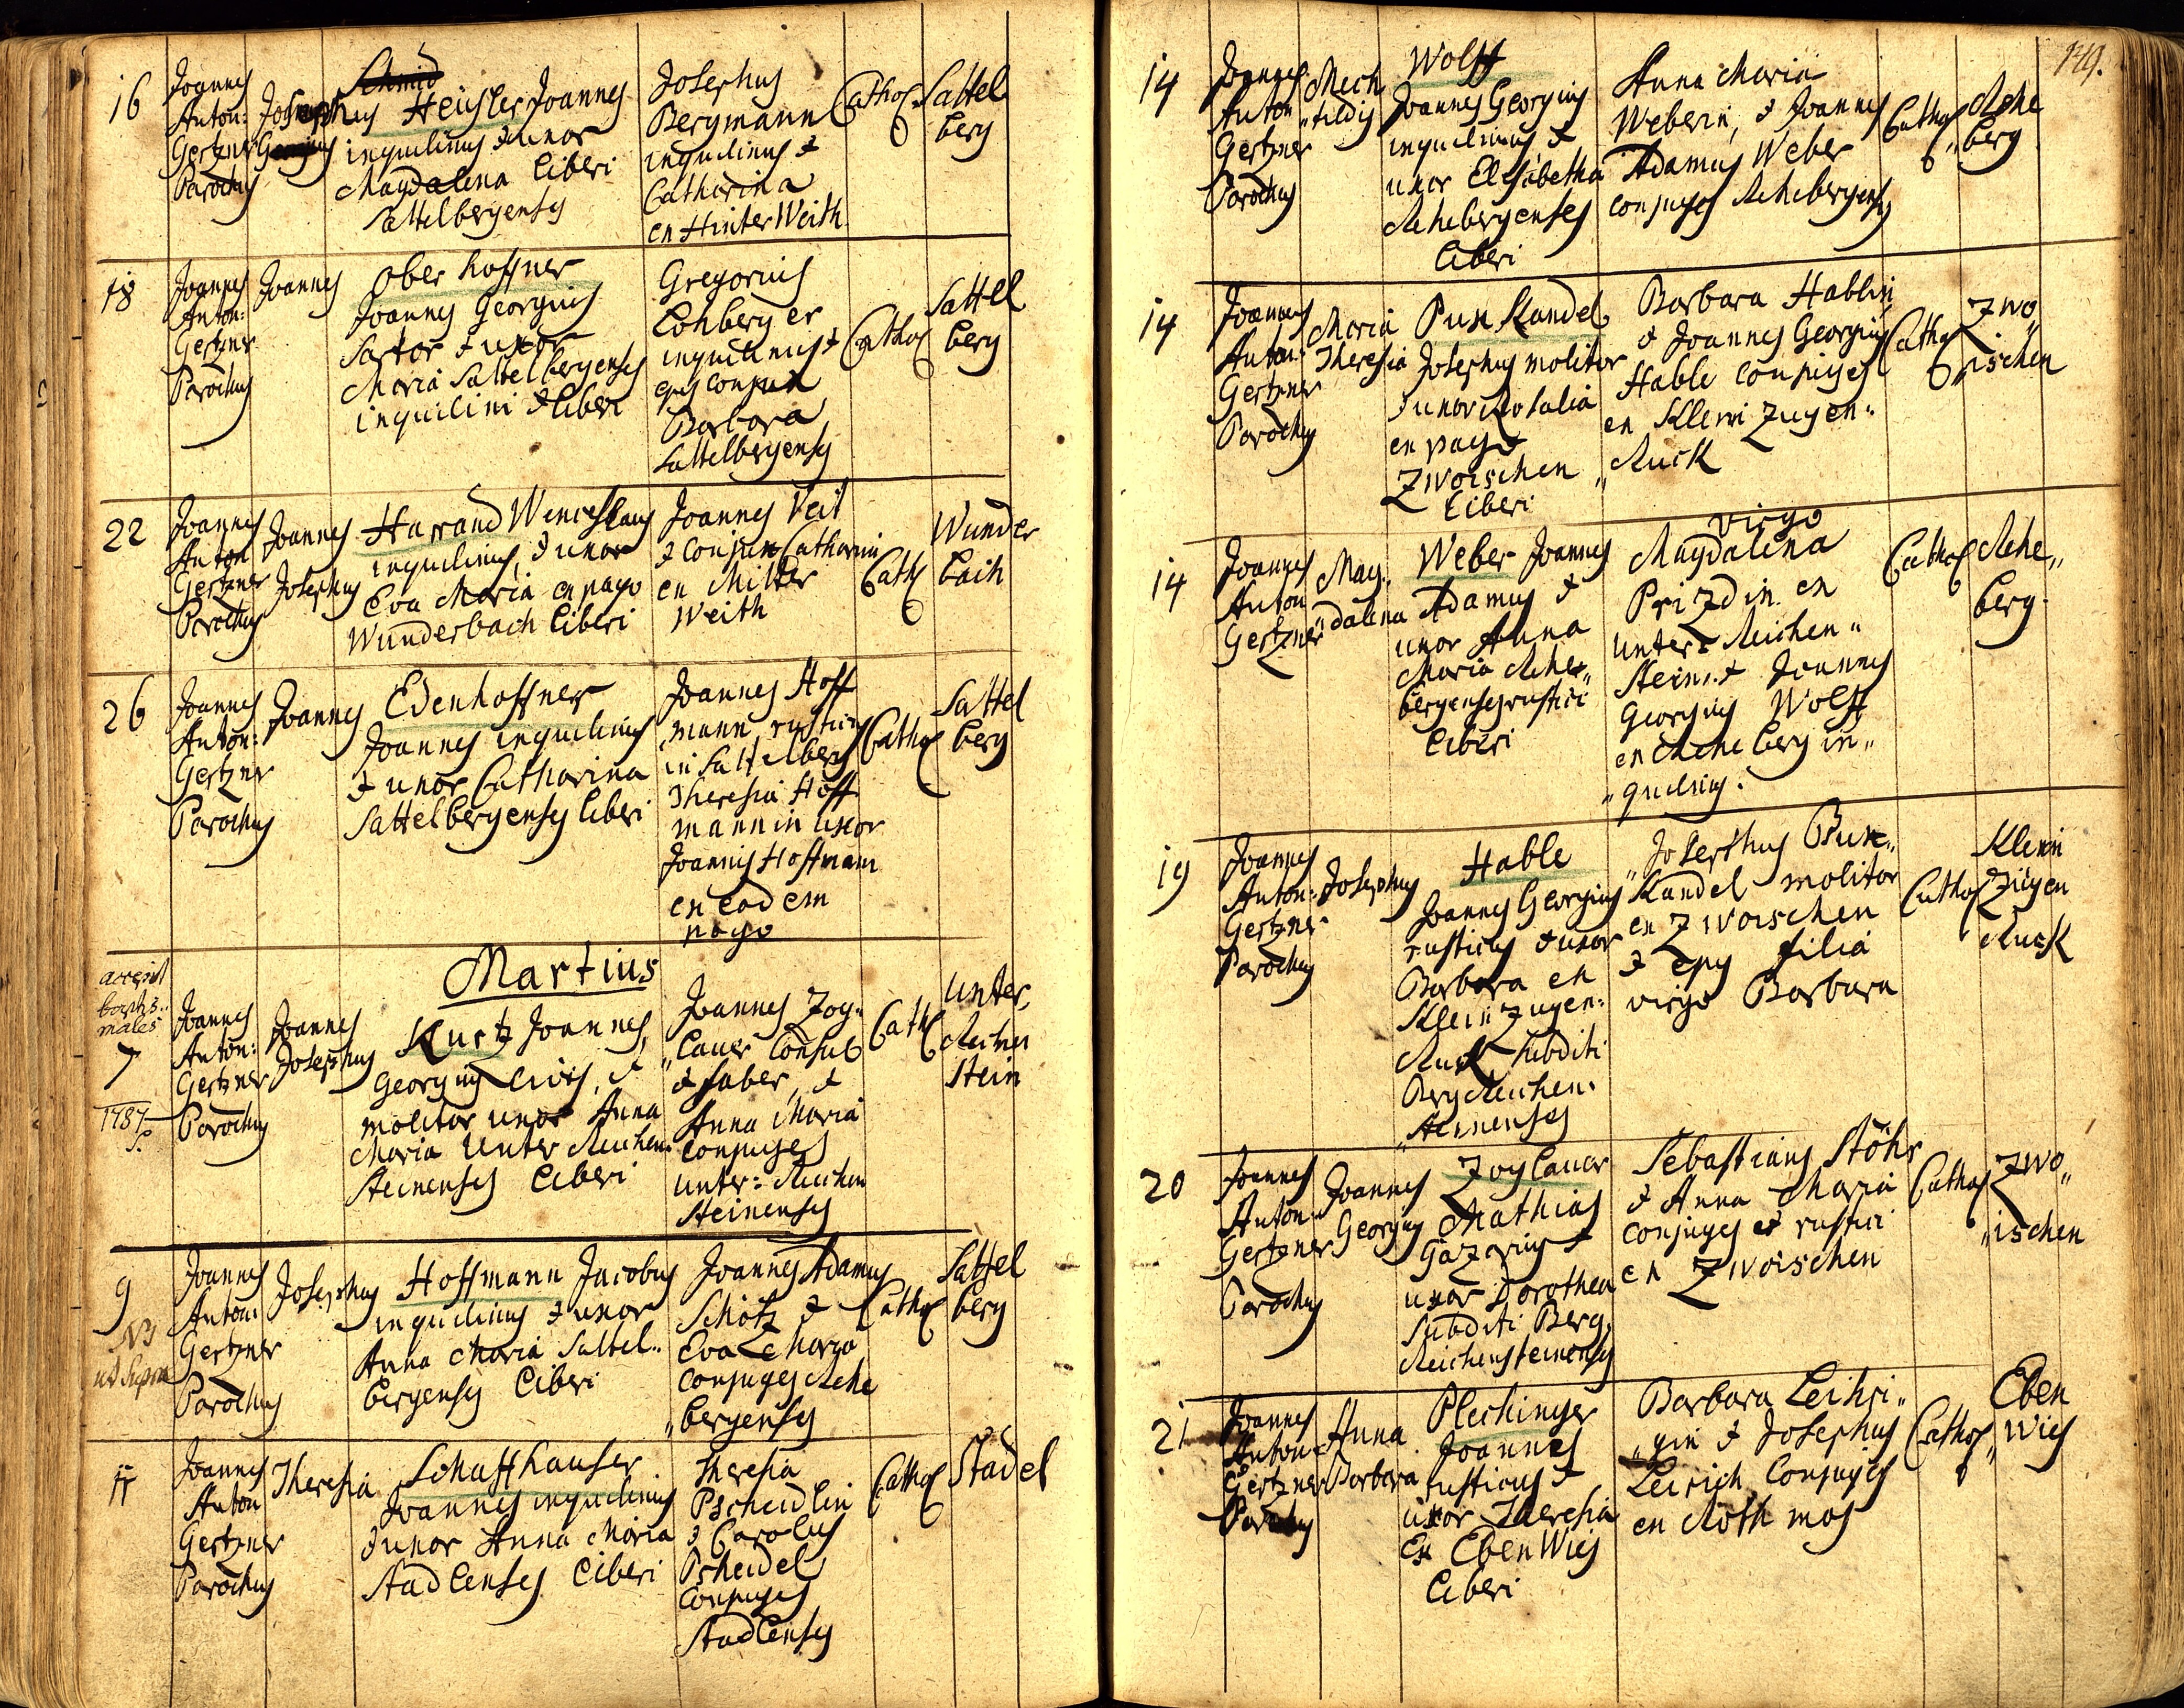 16
Joannes
Anton:
Gertzner
Parochus
Josephus
Schmid
Heüsler Joannes
inquilinus & uxor
Magdalena liberi
Sattelbergenses
Josephus
Bergmann
inquilinus &
Catharina
ex HinterWeith
Cathol
Sattel
berg
18
Joannes
Anton:
Gertzner
Parochus
Joannes
Oberhoffner
Joannes Georgius
Sartor & uxor
Maria Sattelbergenses
inquilini & liberi
Gregorius
Lohberger
inquilinus &
ejus conjux
Barbara
Sattelbergenses
Cathol
Sattel
berg
22
Joannes
Anton
Gertzner
Parochus
Joannes
Josephus
Harrand Wenceslaus
inquilinus, & uxor
Eva Maria ex pago
Wunderbach liberi
Joannes Veit
& conjux Catharin
ex Mitter
Weith
Cath
Wunder
bach
26
Joannes
Anton:
Gertzner
Parochus
Joannes
Edenhoffner
Joannes inquilinus
& uxor Catharina
Sattelbergenses liberi
Joannes Hoff
mann rusticus
in Sattelberg
Theresia Hoff
mannin uxor
Joannis Hoffmann
ex eodem
pago
Cathol
Sattel
berg
Martius
males
7
1787
Joannes
Anton:
Gertzner
Parochus
Joannes
Josephus
Kurtz Joannes
Georgius civis, &
molitor uxor Anna
Maria Unter Reichen
Steinenses liberi
Joannes Zog„
„lauer Consul
& faber, &
Anna Maria
Conjuges
Unter: Reichen
Steinenses
Cath
Unter
Reichen
Stein
9
NB
ut Supra
Joannes
Anton:
Gertzner
Parochus
Josephus
Hoffmann Jacobus
inquilinus & uxor
Anna Maria Sattel„
bergenses liberi
Joannes Adamus
Schötz &
Eva Marga
Conjuges Rehe
„bergenses
Cathol
Sattel
berg
11
Joannes
Anton
Gertzner
Parochus
Theresia
Schaffhauser
Joannes inquilinus
& uxor Anna Maria
Stadlenses liberi
Theresia
Pscheidlin
& Carolus
Pscheidel
Conjuges
Stadlenses
Cathol
Stadel
149.
14
Joannes
Anton
Gertzner
Parochus
Mech
„tildis
Wolff
Joannes Georgius
inquilinus &
uxor Elisabetha
Rehebergenses
liberi
Anna Maria
Weberin, & Joannes
Adamus Weber
conjuges Rehebergenses
Cathol
Rehe
„berg
14
Joannes
Anton:
Gertzner
Parochus
Maria
Theresia
Pux Kandel
Josephus molitor
& uxor Rosalia
ex pago
Zwoischen
liberi
Barbara Hablin
& Joannes Georgius
Hable conjuges
ex Klein Zugen„
„Ruck
Cathol
Zwo„
ischen
14
Joannes
Anton
Gertzner
Mag„
„dalena
Weber Joannes
Adamus &
uxor Anna
Maria Rehe„
bergenses rustici
liberi
virgo
Magdalena
Prizdin ex
Unter Reichen„
Stein & Joannes
Georgius Wolff
ex Reheberg in„
„quilinus.
Cathol
Rehe„
berg
19
Joannes
Anton:
Gertzner
Parochus
Josephus
Hable
Joannes Georgius
rusticus & uxor
Barbara ex
Klein Zugen:
Ruck, subditi
BergReichen:
„steinenses
Josephus Pux„
Kandel molitor
ex Zwoischen
& ejus filia
virgo Barbara
Cathol
Klein
Zugen
Ruck
20
Joannes
Anton
Gertzner
Parochus
Joannes
Georgius
Zoglauer
Mathias
Gazarius &
uxor Dorothea
subditi Berg„
Reichensteinenses
Sebastianus Stöhr
& Anna Maria
conjuges & rustici
ex Zwoischen
Cathol
Zwo„
„ischen
21
Joannes
Anton
Gertzner
Parochus
Anna
Barbara
Plechinger
Joannes
rusticus &
uxor Theresia
Ex EbenWies
liberi
Barbara Leihri„
„gin & Josephus
Leirich Conjuges
ex Rothmos
Cathol
Eben
„Wies